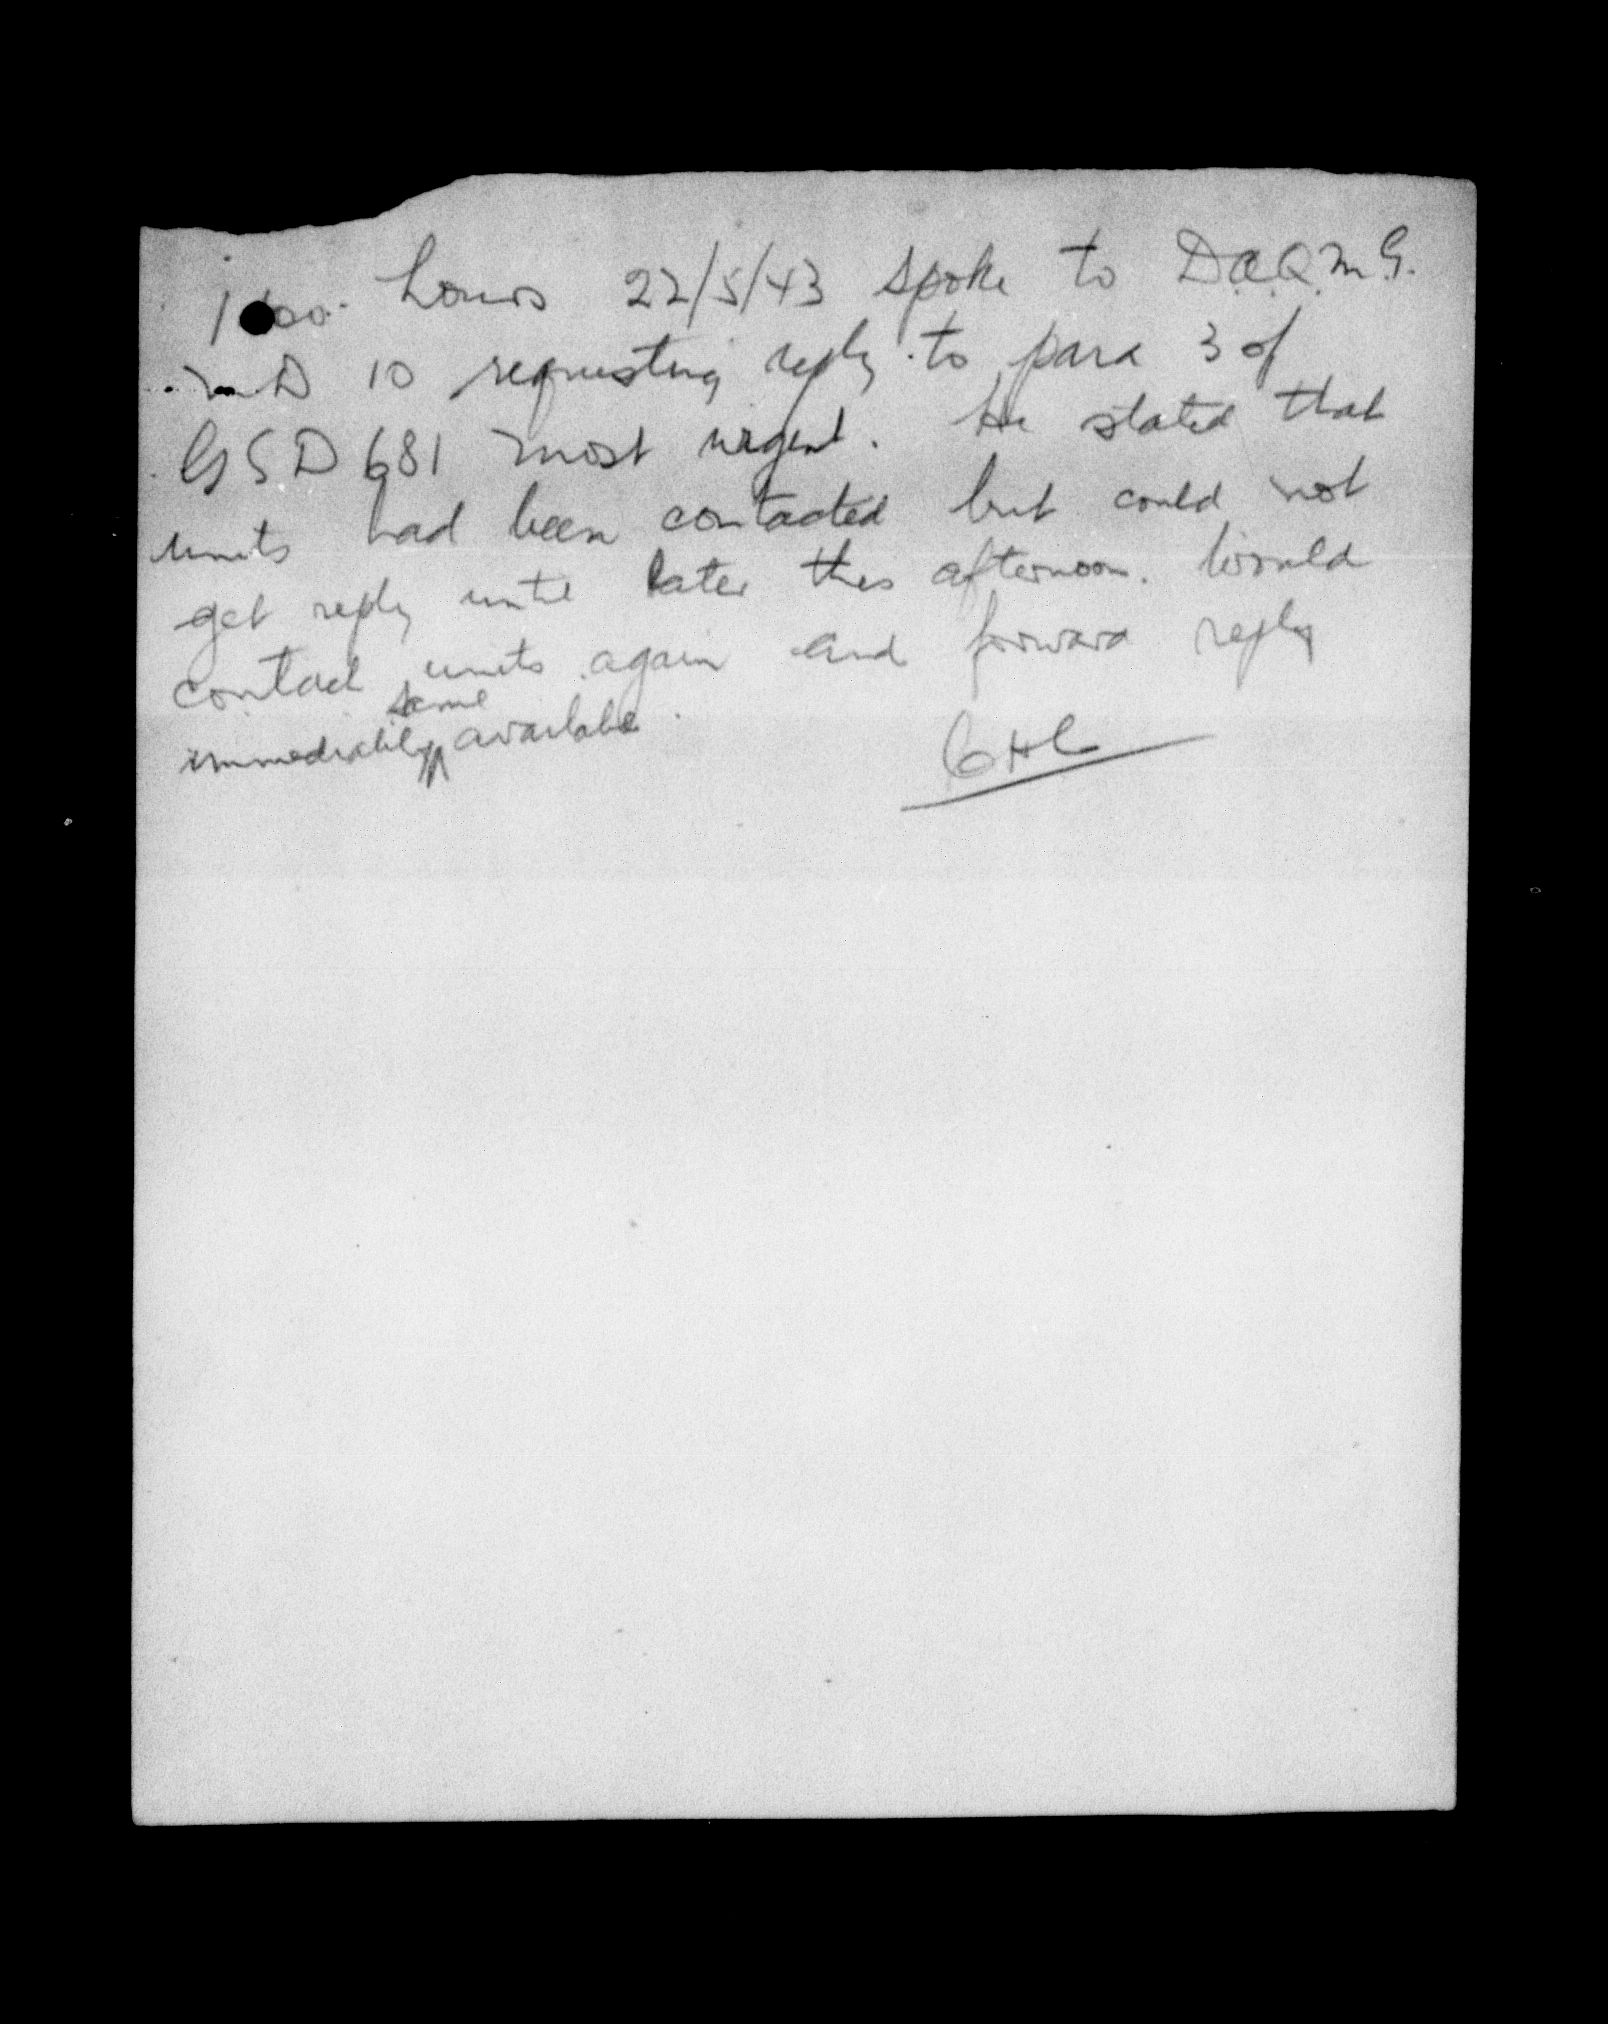 hours 22/5/43 spoke to D.A.Q.M.G.
M D 10 requesting reply to para 3 of
GSD 681 most urgent. He stated that
units had been contacted but could not
get reply until later this afternoon. Would
contact units again and forward reply
same
immediately available.
GHL